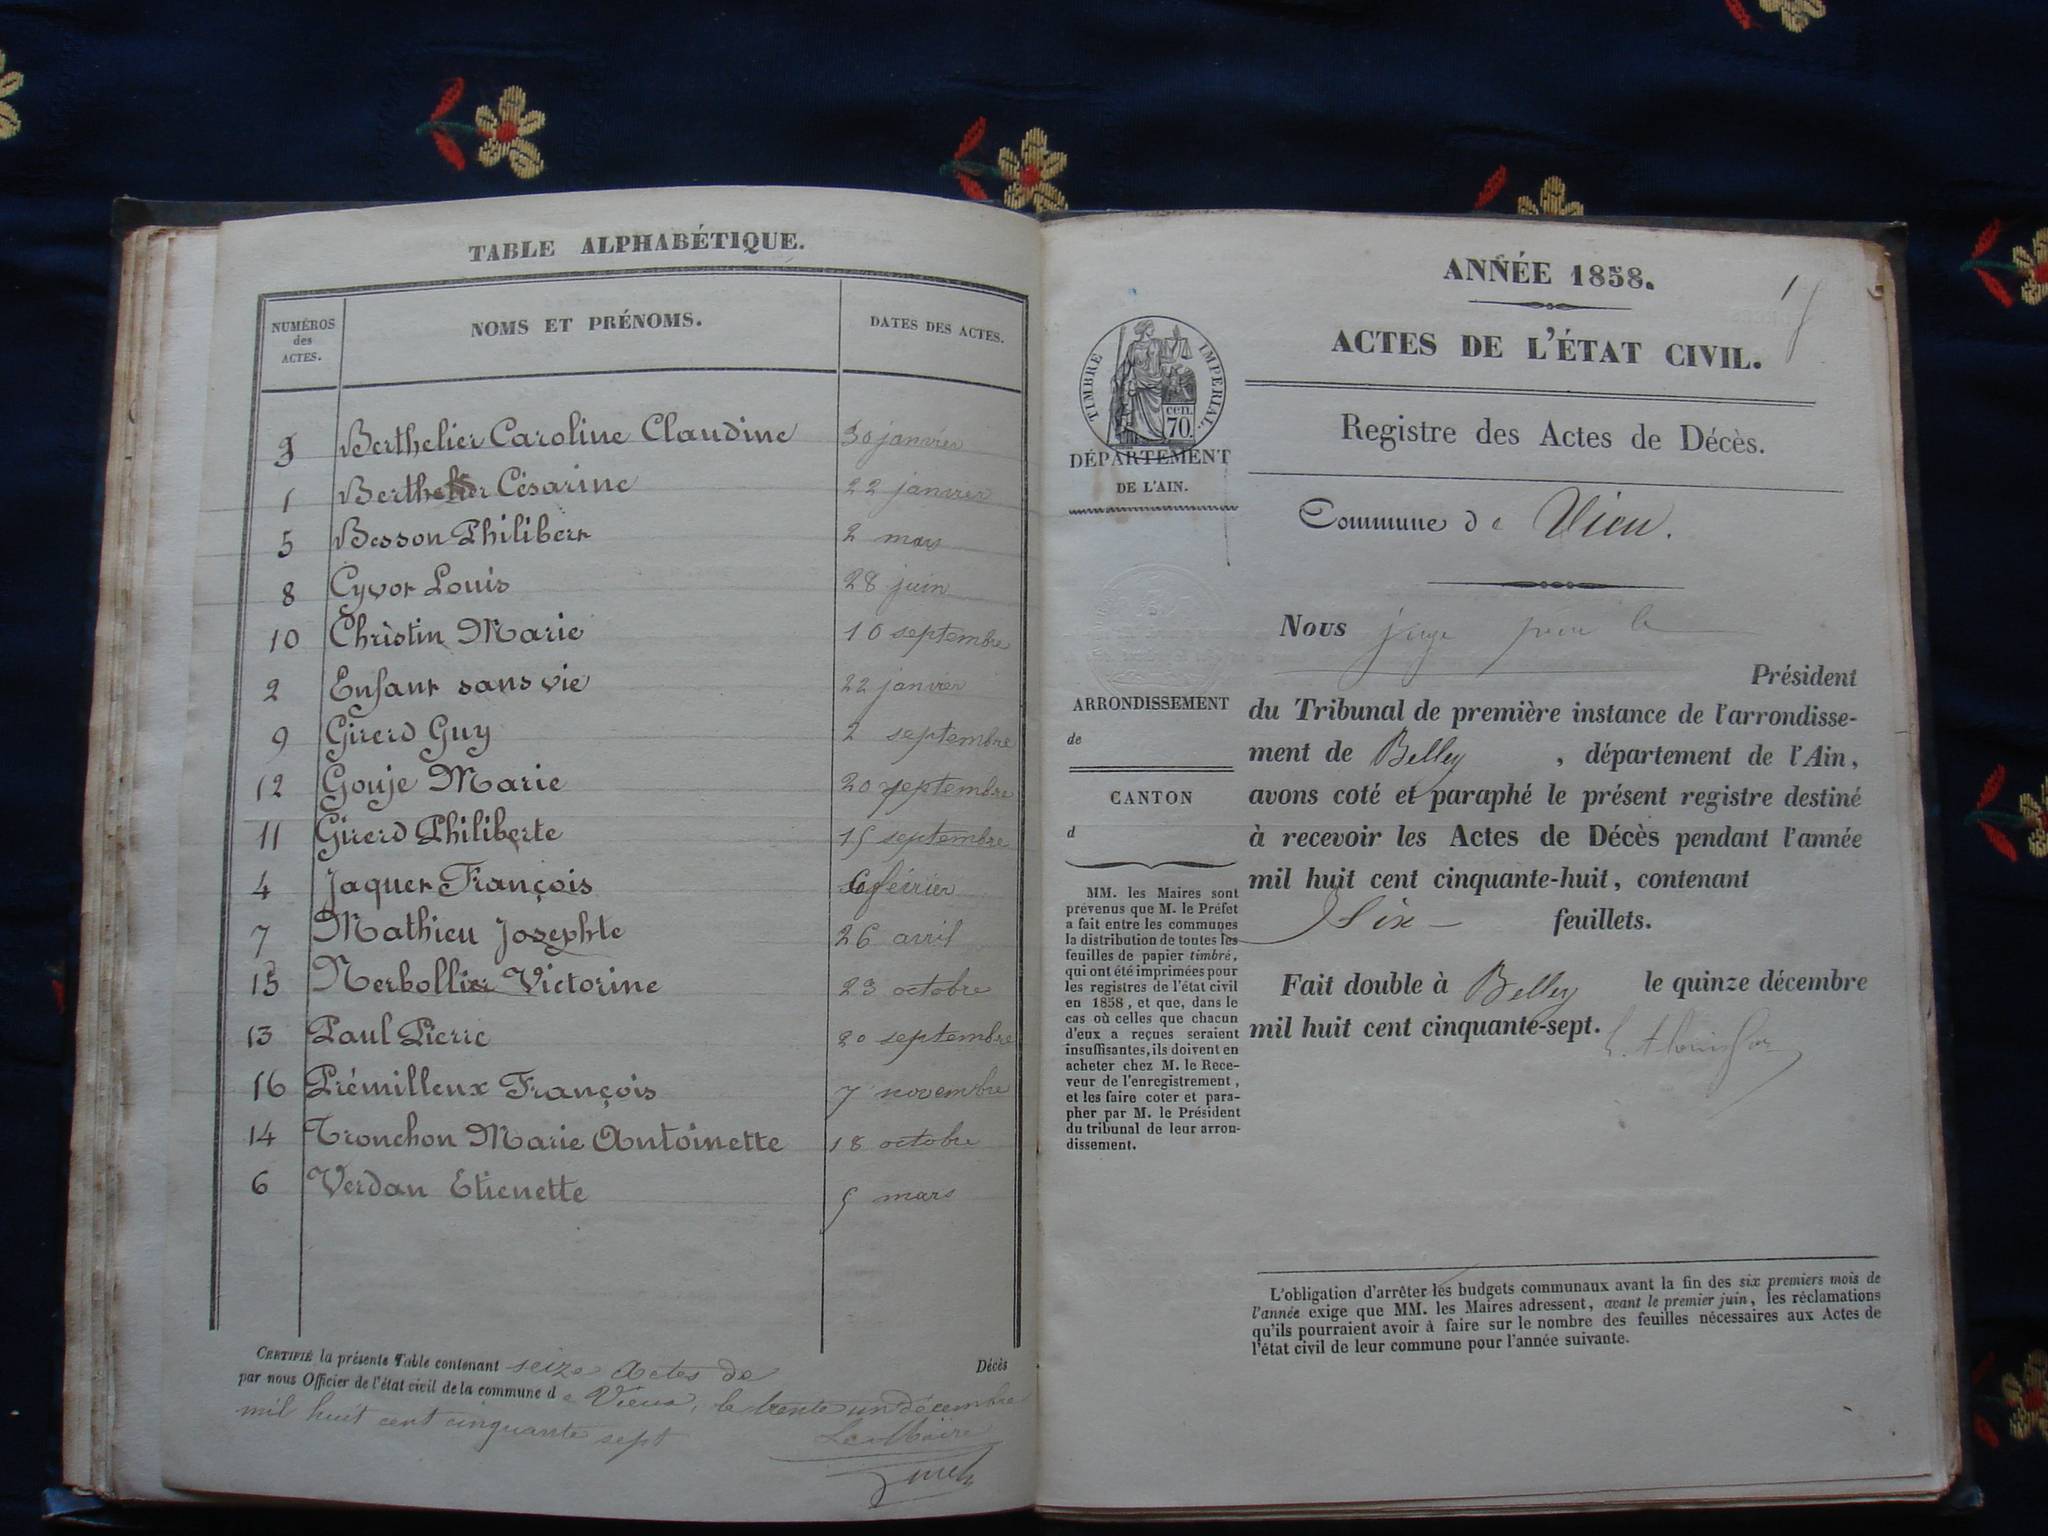 TABLE ALPHABÉTIQUE.
NUMÉROS des ACTES. NOMS ET PRÉNOMS. DATES DES ACTES.
3 Berthelier Caroline Claudine 30 janvier
1 Berthelier Césarine 22 janvier
5 Besson Philibert 2 mars
8 Cyvot Louis 28 juin
10 Christin Marie 10 septembre
2 Enfant sans vie 22 janvier
9 Girerd Guy 2 septembre
12 Gouje Marie 20 septembre
11 Girerd Philiberte 15 septembre
4 Jaquet François 6 février
7 Mathieu Josephte 26 avril
15 Nerbollier Victorine 23 octobre
13 Paul Pierre 20 septembre
16 Prémilleux François 7 novembre
14 Tronchon Marie Antoinette 18 octobre
6 Verdan Etienette 5 mars
CERTIFIÉ la présente Table contenant seize actes de Décès
par nous Officier de l'état civil de la commune de Vieu, le trente un décembre
mil huit cent cinquante sept
Le Maire
ANNÉE 1858.
ACTES DE L'ÉTAT CIVIL.
Registre des Actes de Décès.
Commune de Vieu.
TIMBRE IMPERIAL.
cen.
70.
DÉPARTEMENT
DE L'AIN.
ARRONDISSEMENT
de
CANTON
d
MM. les Maires sont
prévenus que M. le Préfet
a fait entre les communes
la distribution de toutes les
feuilles de papier timbré,
qui ont été imprimées pour
les registres de l'état civil
en 1858, et que, dans le
cas où celles que chacun
d'eux a reçues seraient
insuffisantes, ils doivent en
acheter chez M. le Rece-
veur de l'enregistrement,
et les faire coter et para-
pher par M. le Président
du tribunal de leur arron-
dissement.
Nous juge pour le
Président
du Tribunal de première instance de l'arrondisse-
ment de Belley, département de l'Ain,
avons coté et paraphé le présent registre destiné
à recevoir les Actes de Décès pendant l'année
mil huit cent cinquante-huit, contenant
Six feuillets.
Fait double à Belley le quinze décembre
mil huit cent cinquante-sept.
L'obligation d'arrêter les budgets communaux avant la fin des six premiers mois de
l'année exige que MM. les Maires adressent, avant le premier juin, les réclamations
qu'ils pourraient avoir à faire sur le nombre des feuilles nécessaires aux Actes de
l'état civil de leur commune pour l'année suivante.